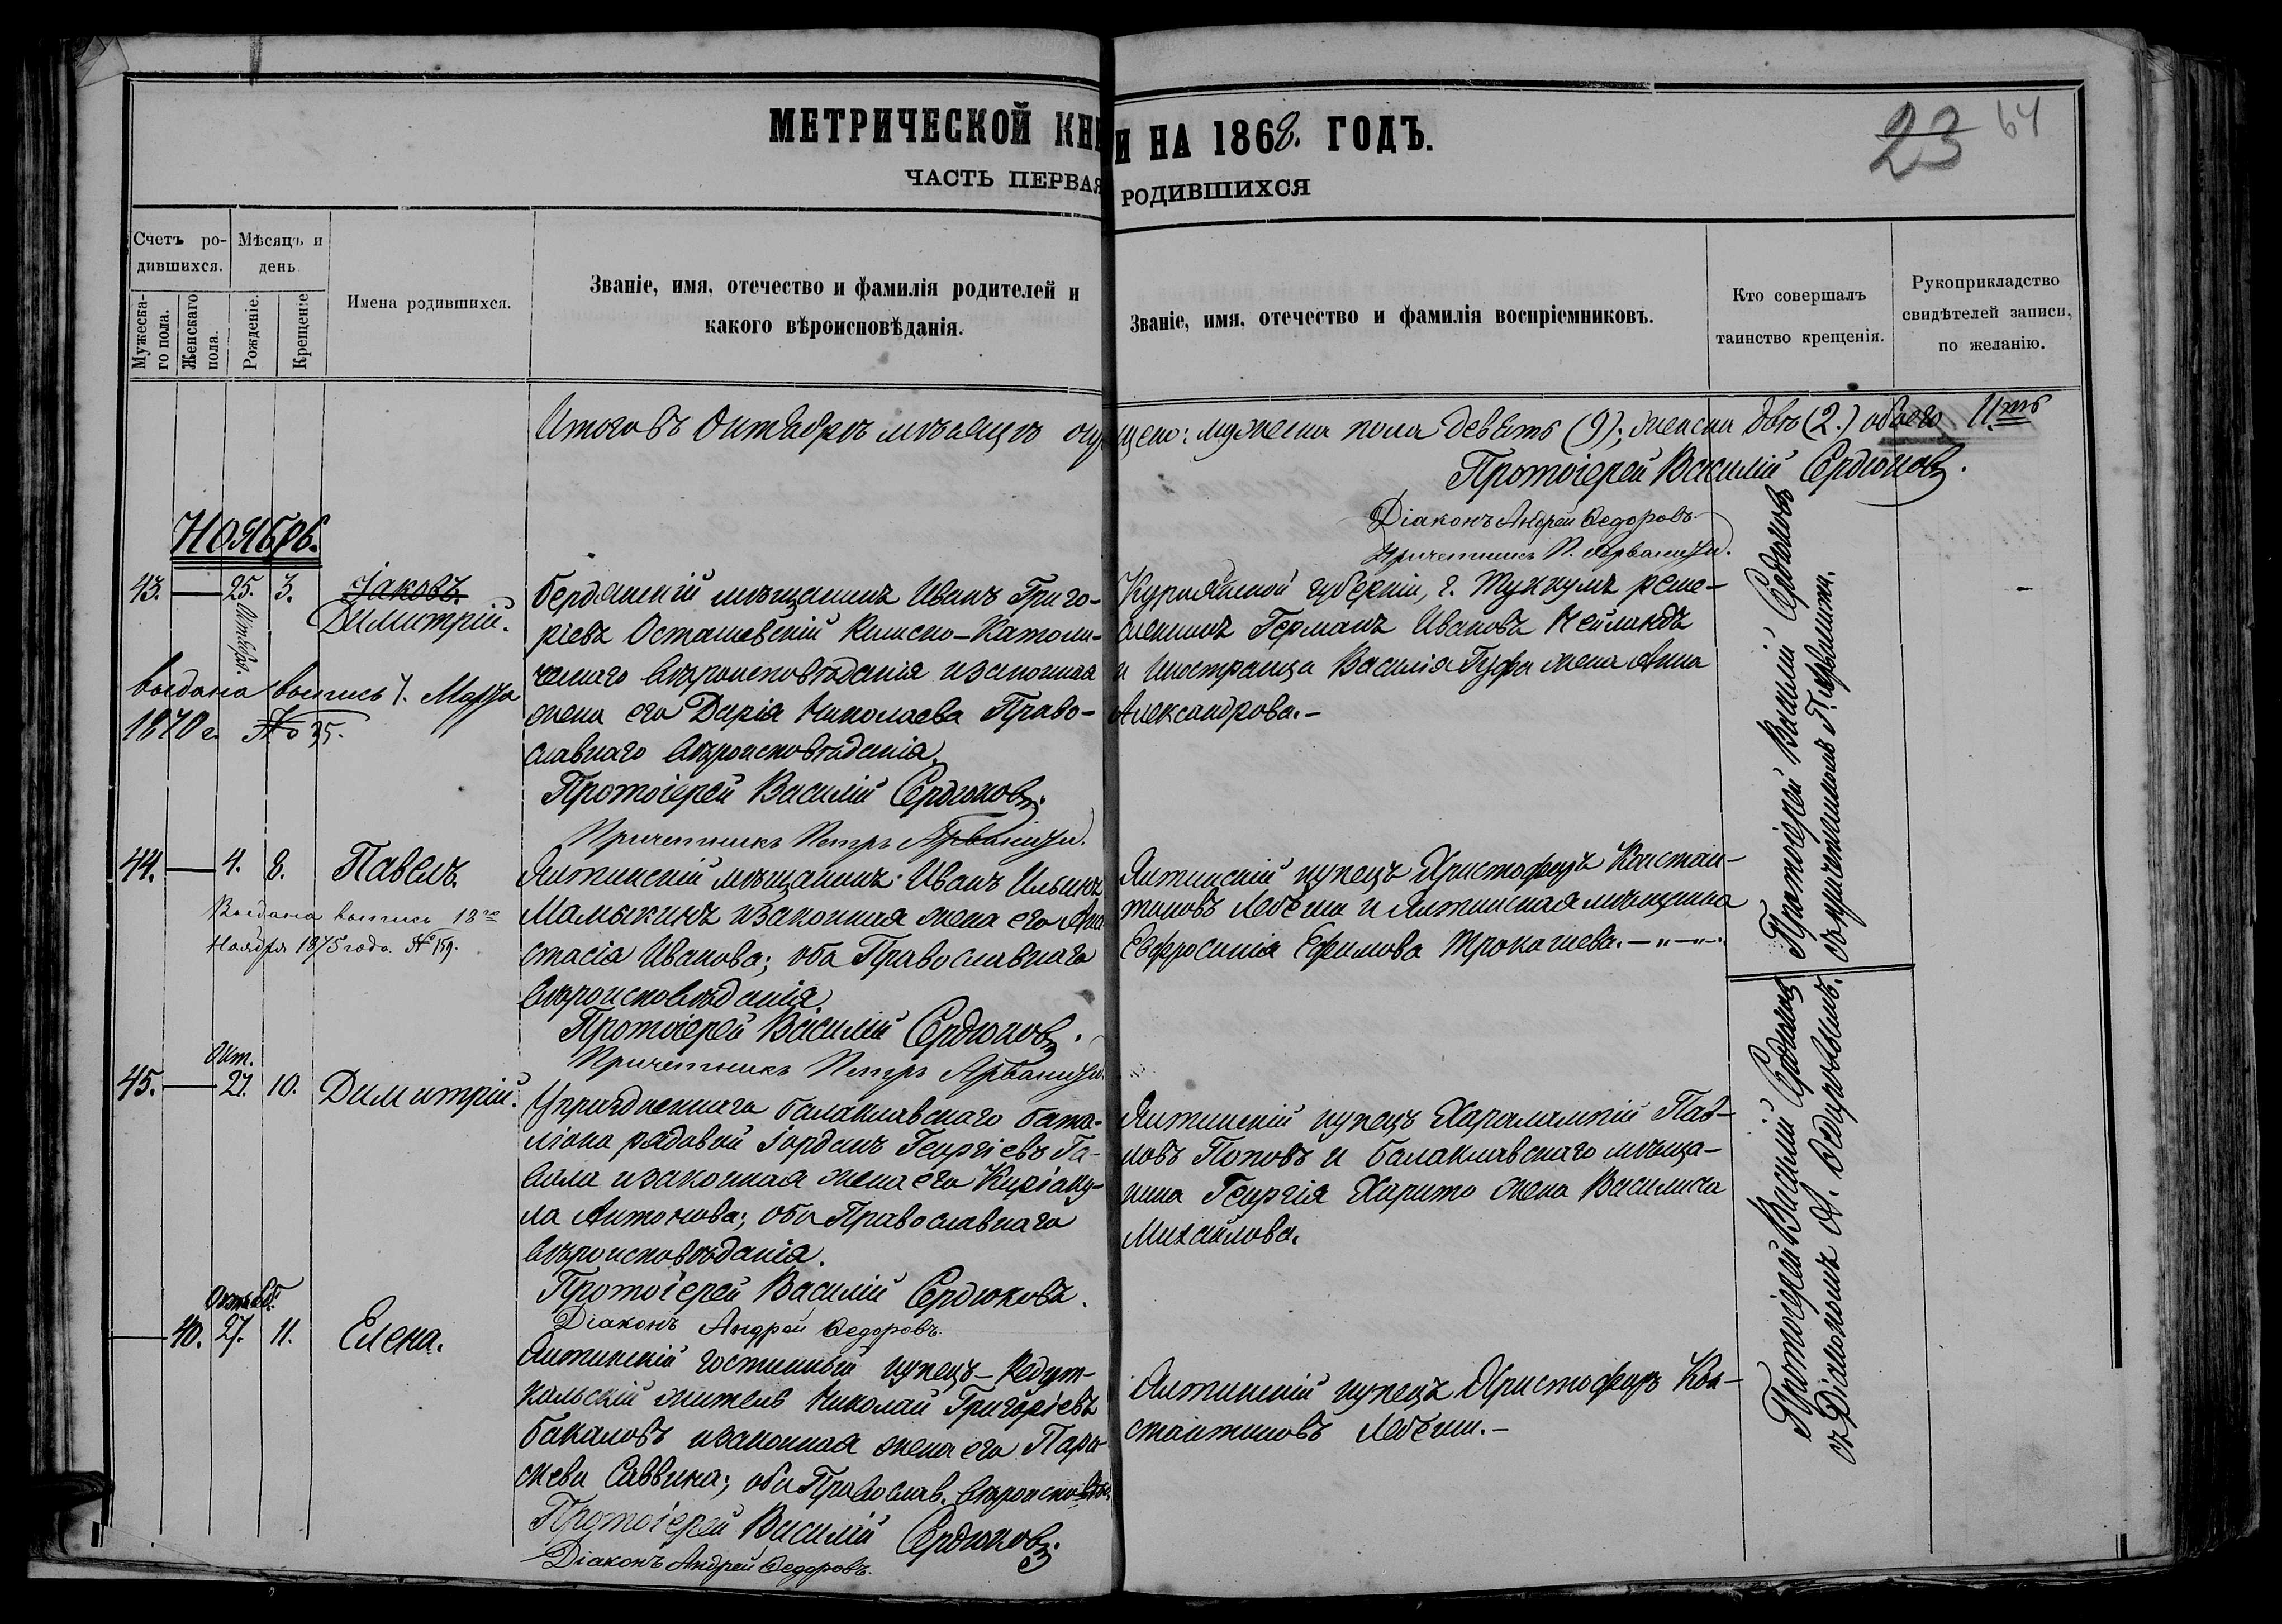 МЕТРИЧЕСКОЙ КНИ И НА 1868. ГОДЪ.
23 64
ЧАСТЬ ПЕРВАЯ РОДИВШИХСЯ
Счетъ ро-
дившихся.
Мужеска-
го пола.
Женскаго
пола.
Мѣсяцъ и
день
Рожденіе.
Крещеніе
Имена родившихся.
Званіе, имя, отечество и фамилія родителей и
какого вѣроисповѣданія.
Званіе, имя, отечество и фамилія воспріемниковъ.
Кто совершалъ
таинство крещенія.
Рукоприкладство
свидѣтелей записи,
по желанію.
Итого въ Октябрѣ мѣсяцѣ окрещено: мужеска пола девять (9); женска двѣ (2.) обоего 11ть
Протоіерей Василій Сердюковъ.
Діаконъ Андрей Ѳедоровъ.
Причетникъ П.
Ноябрь.
43. — 25. 3. Іаковъ.
Октября.
Димитрій.
Выдана выпись 7. Марта
1870 г. № 35.
Бердянскій мѣщанинъ Иванъ Григо-
ріевъ Осташевскій Римско-Католи-
ческаго вѣроисповѣданія и законная
жена его Дарія Николаева Право-
славнаго вѣроисповѣданія.
Протоіерей Василій Сердюковъ.
Причетникъ Петръ
Курляндской губерніи, г. Туккумъ реме-
сленникъ Германъ Ивановъ Нейландъ
и Иностранца Василія Гуфа жена Анна
Александрова.—
Протоіерей Василій Сердюковъ
съ причетникомъ П.
44. — 4. 8. Павелъ.
Выдана выпись 18го
Ноября 1875 года. № 159.
Ялтинскій мѣщанинъ Иванъ Ильинъ
Мамыкинъ и законная жена его Ана
стасія Иванова; оба Православнаго
вѣроисповѣданія
Протоіерей Василій Сердюковъ.
Причетникъ Петръ
Ялтинскій купецъ Христофоръ Констан-
тиновъ и Ялтинская мѣщанка
Евфросинія Ефимова —„—„—
45. — Окт. 27. 10. Димитрій.
Упраздненнаго балаклавскаго бата-
ліона рядовой Іорданъ Георгіевъ Га-
вала и законная жена его Киріаку-
ла Антонова; оба Православнаго
вѣроисповѣданія.
Протоіерей Василій Сердюковъ.
Діаконъ Андрей Ѳедоровъ.
Ялтинскій купецъ Харалампій Пав-
ловъ Поповъ и балаклавскаго мѣща-
нина Георгія Харито жена Василиса
Михайлова.
Протоіерей Василій Сердюковъ
съ Діакономъ А. Ѳедоровымъ.
— 40. Октяб. 27. 11. Елена.
Ялтинскій купецъ — Редут-
кальскій житель Николай Григоріевъ
Бакаловъ и законная жена его Пара-
скева Саввина; оба Православ. вѣроисповѣд.
Протоіерей Василій Сердюковъ.
Діаконъ Андрей Ѳедоровъ.
Ялтинскій купецъ Христофоръ Кон-
стантиновъ